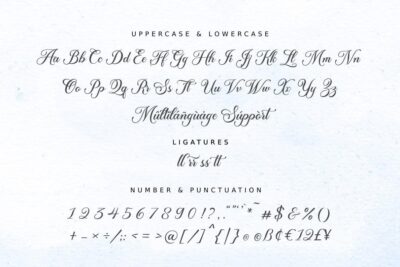 UPPERCASE & LOWERCASE
Aa Bb Cc Dd Ee Ff Gg Hh Ii Jj Kk Ll Mm Nn
Oo Pp Qq Rr Ss Tt Uu Vv Ww Xx Yy Zz
Multilanguage Support
LIGATURES
ll rr ss tt
NUMBER & PUNCTUATION
1234567890!?.,"''*#$&%()
+-×÷/:;<=>@[/]^{|}®©฿¢€12£¥